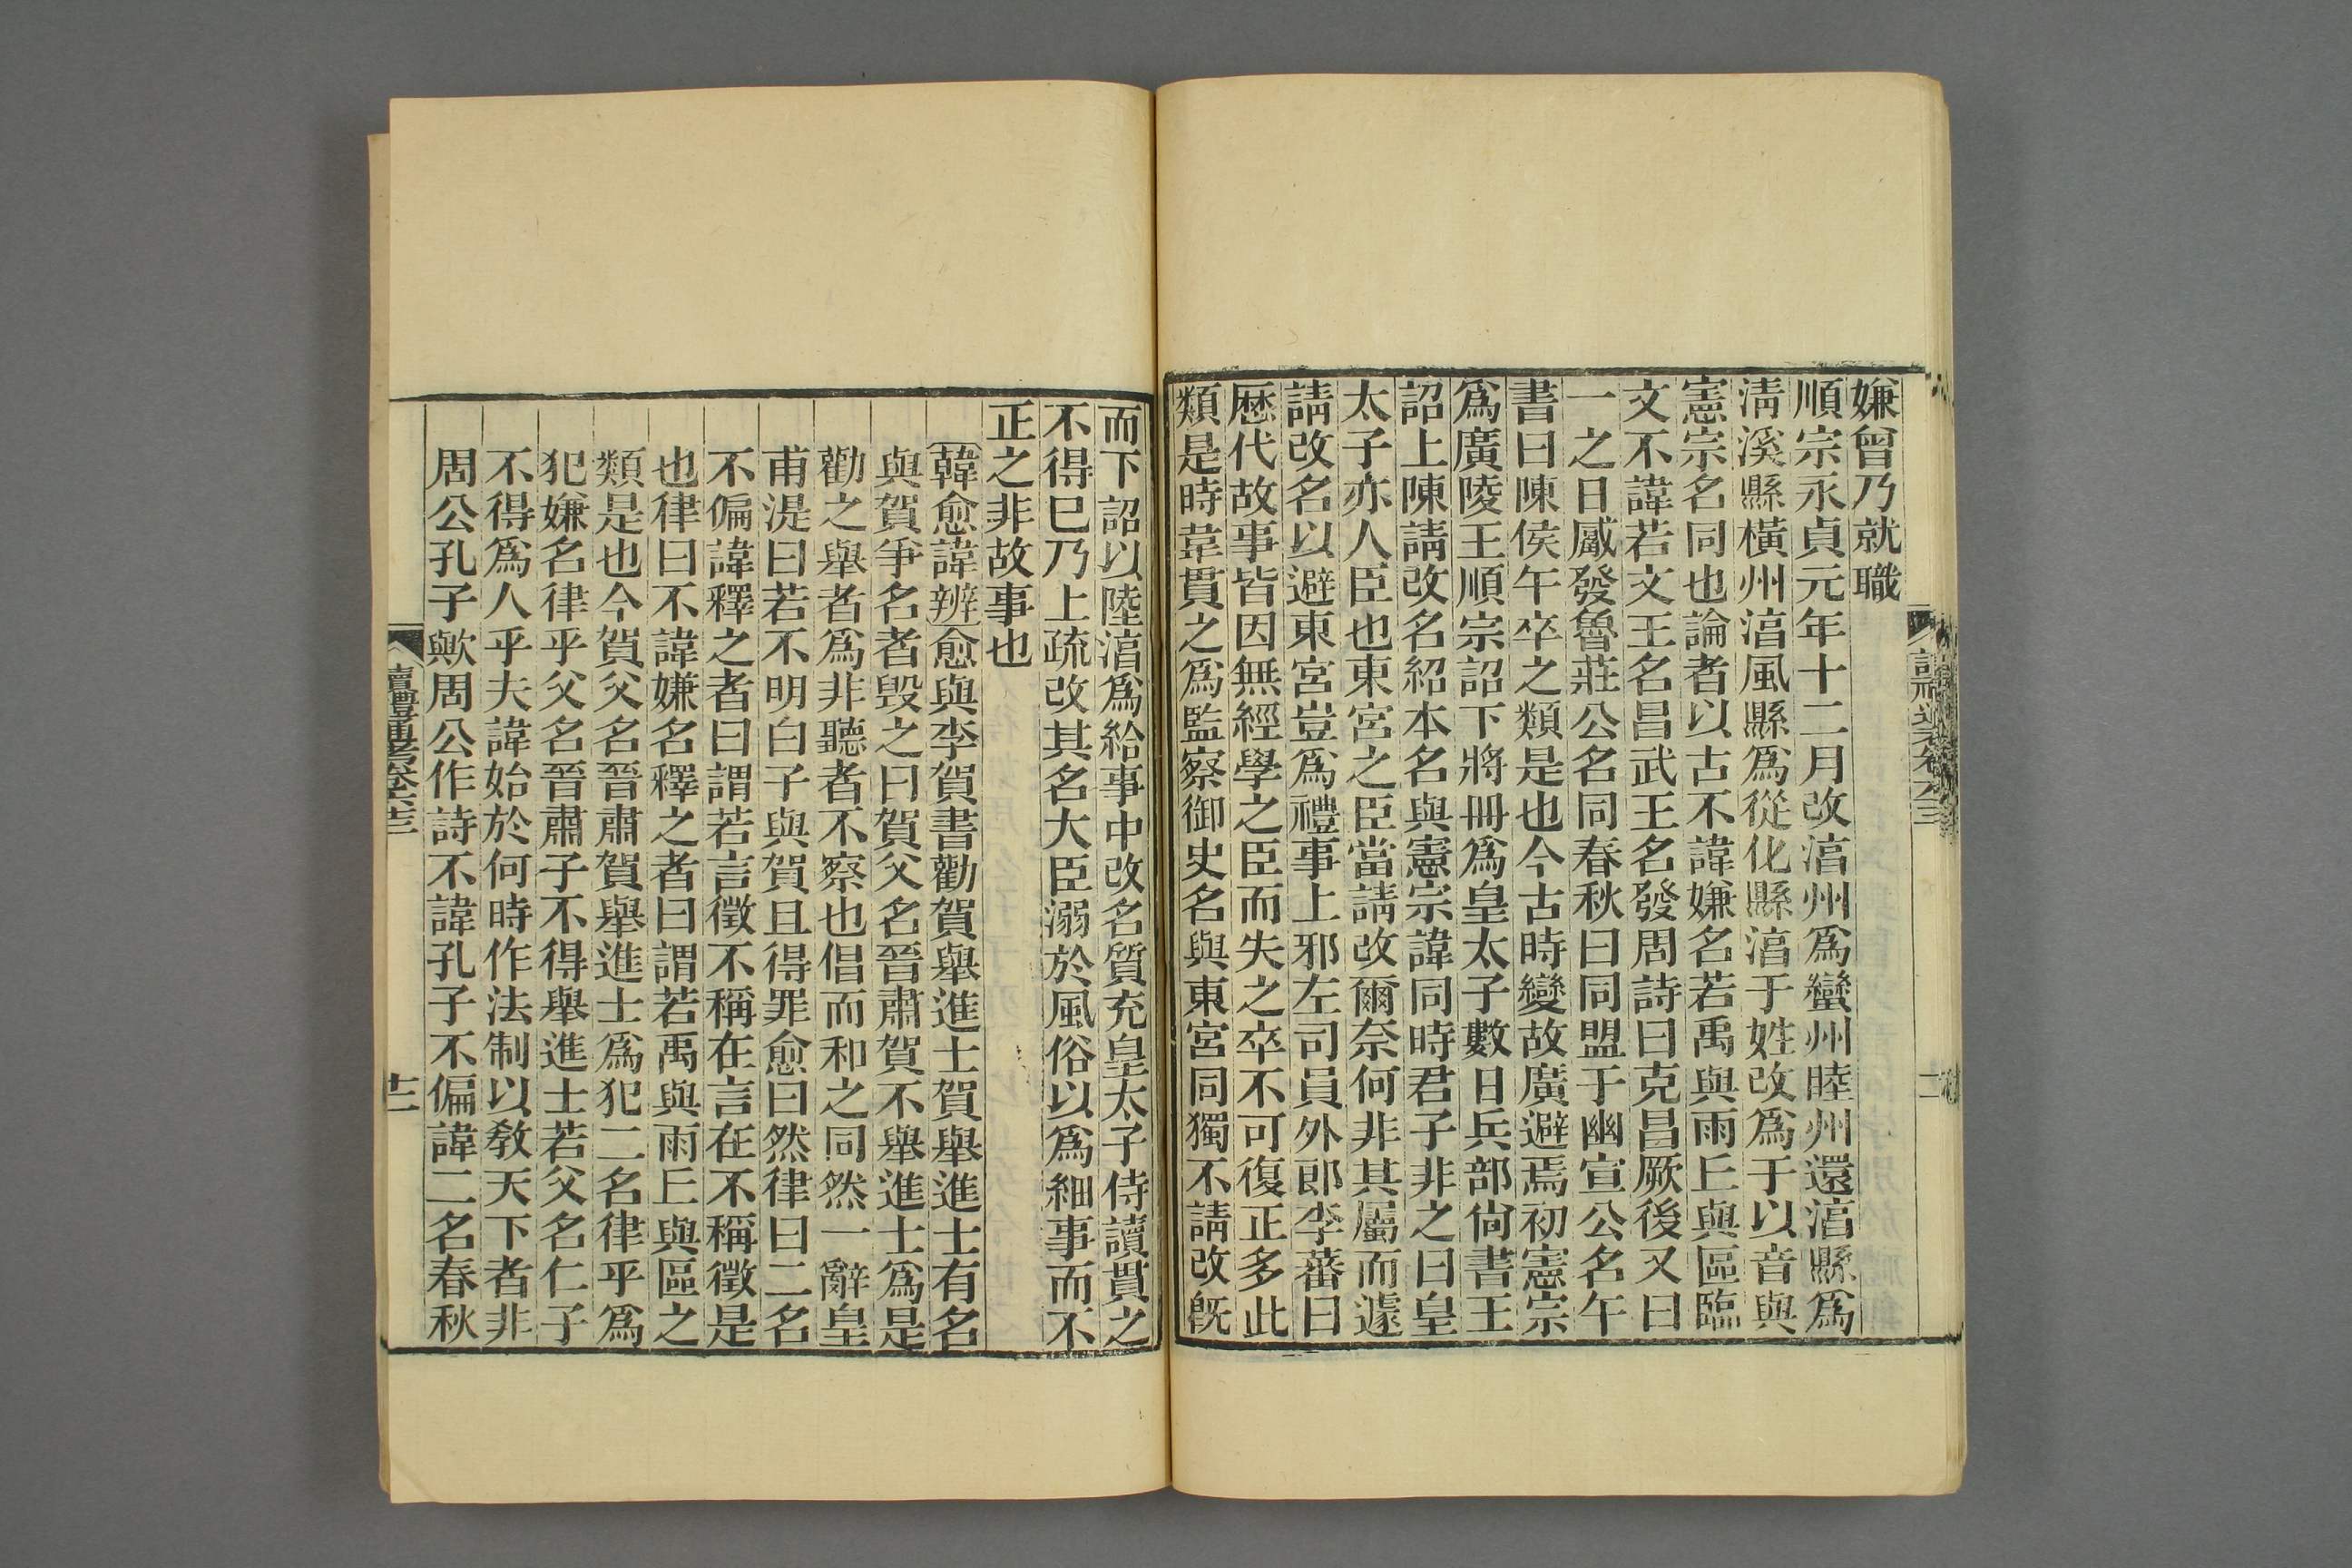 嫌曾乃就職
順宗永貞元年十二月改湻州爲蠻州睦州還湻縣爲
淸溪縣橫州湻風縣爲從化縣湻于姓改爲于以音與
憲宗名同也論者以古不諱嫌名若禹與雨丘與區臨
文不諱若文王名昌武王名發周詩曰克昌厥後又曰
一之日觱發魯莊公名同春秋曰同盟于幽宣公名午
書曰陳侯午卒之類是也今古時變故廣避焉初憲宗
爲廣陵王順宗詔下將冊爲皇太子數日兵部尙書王
詔上陳請改名紹本名與憲宗諱同時君子非之曰皇
太子亦人臣也東宮之臣當請改爾奈何非其屬而遽
請改名以避東宮豈爲禮事上邪左司員外郞李藩曰
歷代故事皆因無經學之臣而失之卒不可復正多此
類是時韋貫之爲監察御史名與東宮同獨不請改旣
而下詔以陸湻爲給事中改名質充皇太子侍讀貫之
不得已乃上疏改其名大臣溺於風俗以爲細事而不
正之非故事也
韓愈諱辨愈與李賀書勸賀舉進士賀舉進士有名
與賀爭名者毁之曰賀父名晉肅賀不舉進士爲是
勸之舉者爲非聽者不察也倡而和之同然一辭皇
甫湜曰若不明白子與賀且得罪愈曰然律曰二名
不偏諱釋之者曰謂若言徵不稱在言在不稱徵是
也律曰不諱嫌名釋之者曰謂若禹與雨丘與區之
類是也今賀父名晉肅賀舉進士爲犯二名律乎爲
犯嫌名律乎父名晉肅子不得舉進士若父名仁子
不得爲人乎夫諱始於何時作法制以敎天下者非
周公孔子歟周公作詩不諱孔子不偏諱二名春秋
讀禮通考卷六十三
十二